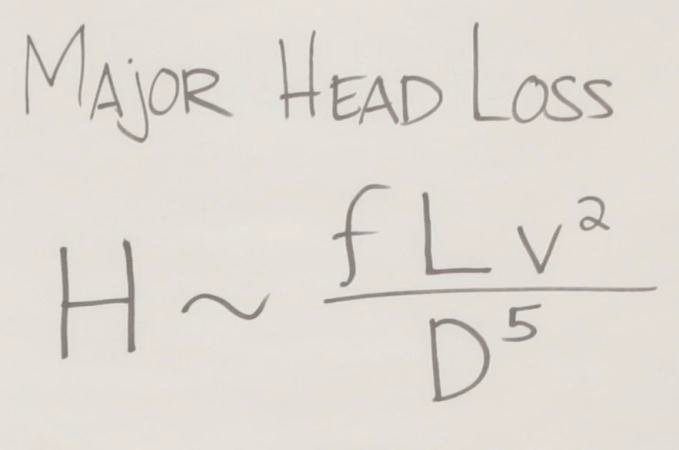 Major Head Loss
H ~ f L v² / D⁵